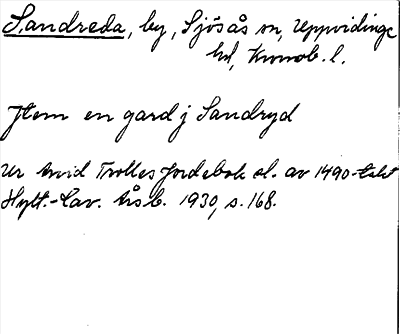 Sandreda, by, Sjösås sn, Uppvidinge
hd, Kronob. l.
Item en gard j Sandryd
Ur Arvid Trolles Jordebok sl. av 1490-talet
Hylt.-Cav. Årsb. 1930, s. 168.